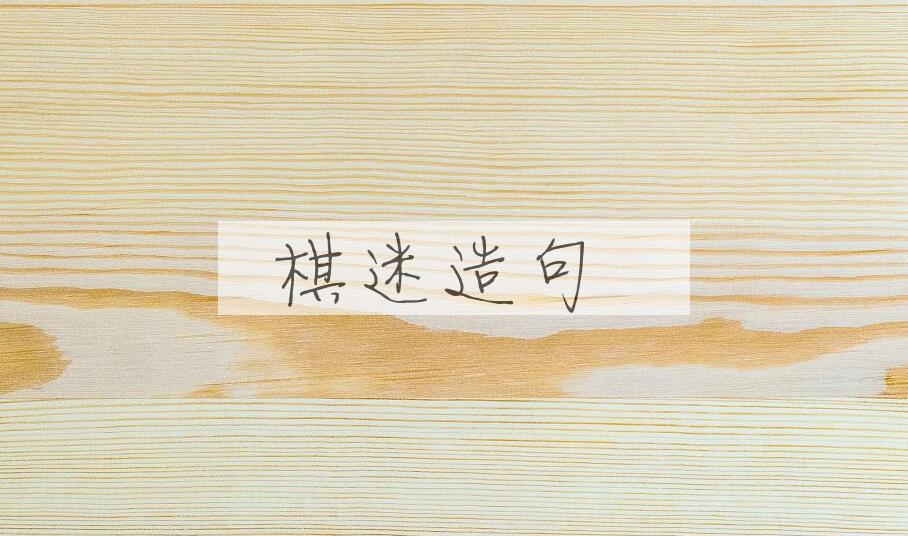 棋迷造句